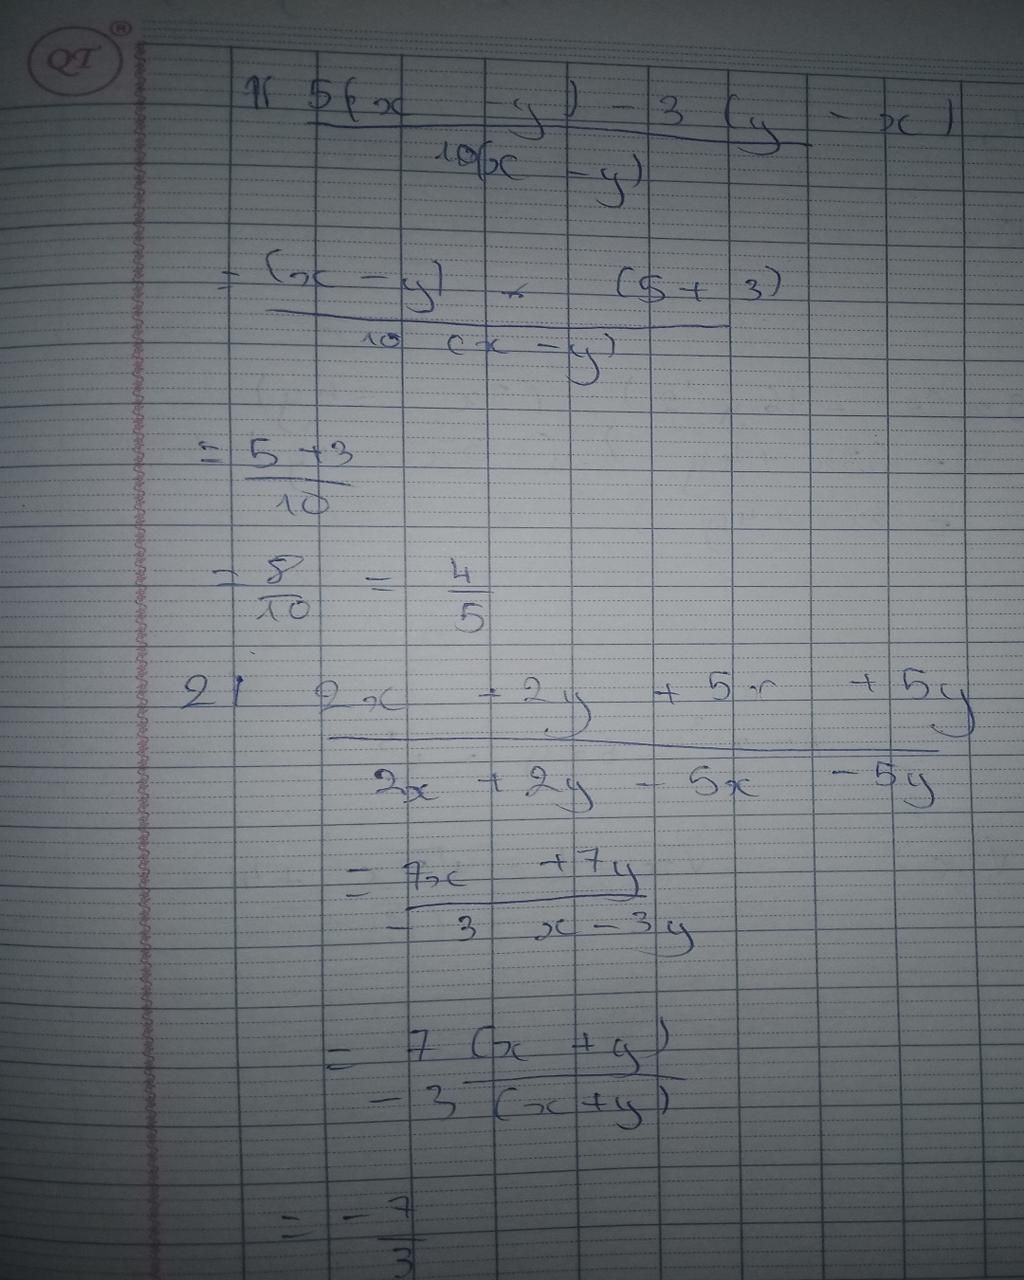 QT ®
1( 5(x - y) - 3 (y - x)
10(x - y)
= (x - y) × (5 + 3)
10 (x - y)
= 5 + 3
10
= 8 = 4
10 5
2) 2x + 2y + 5x + 5y
2x + 2y - 5x - 5y
= 7x + 7y
- 3 x - 3y
= 7 (x + y)
- 3 (x + y)
= - 7
3